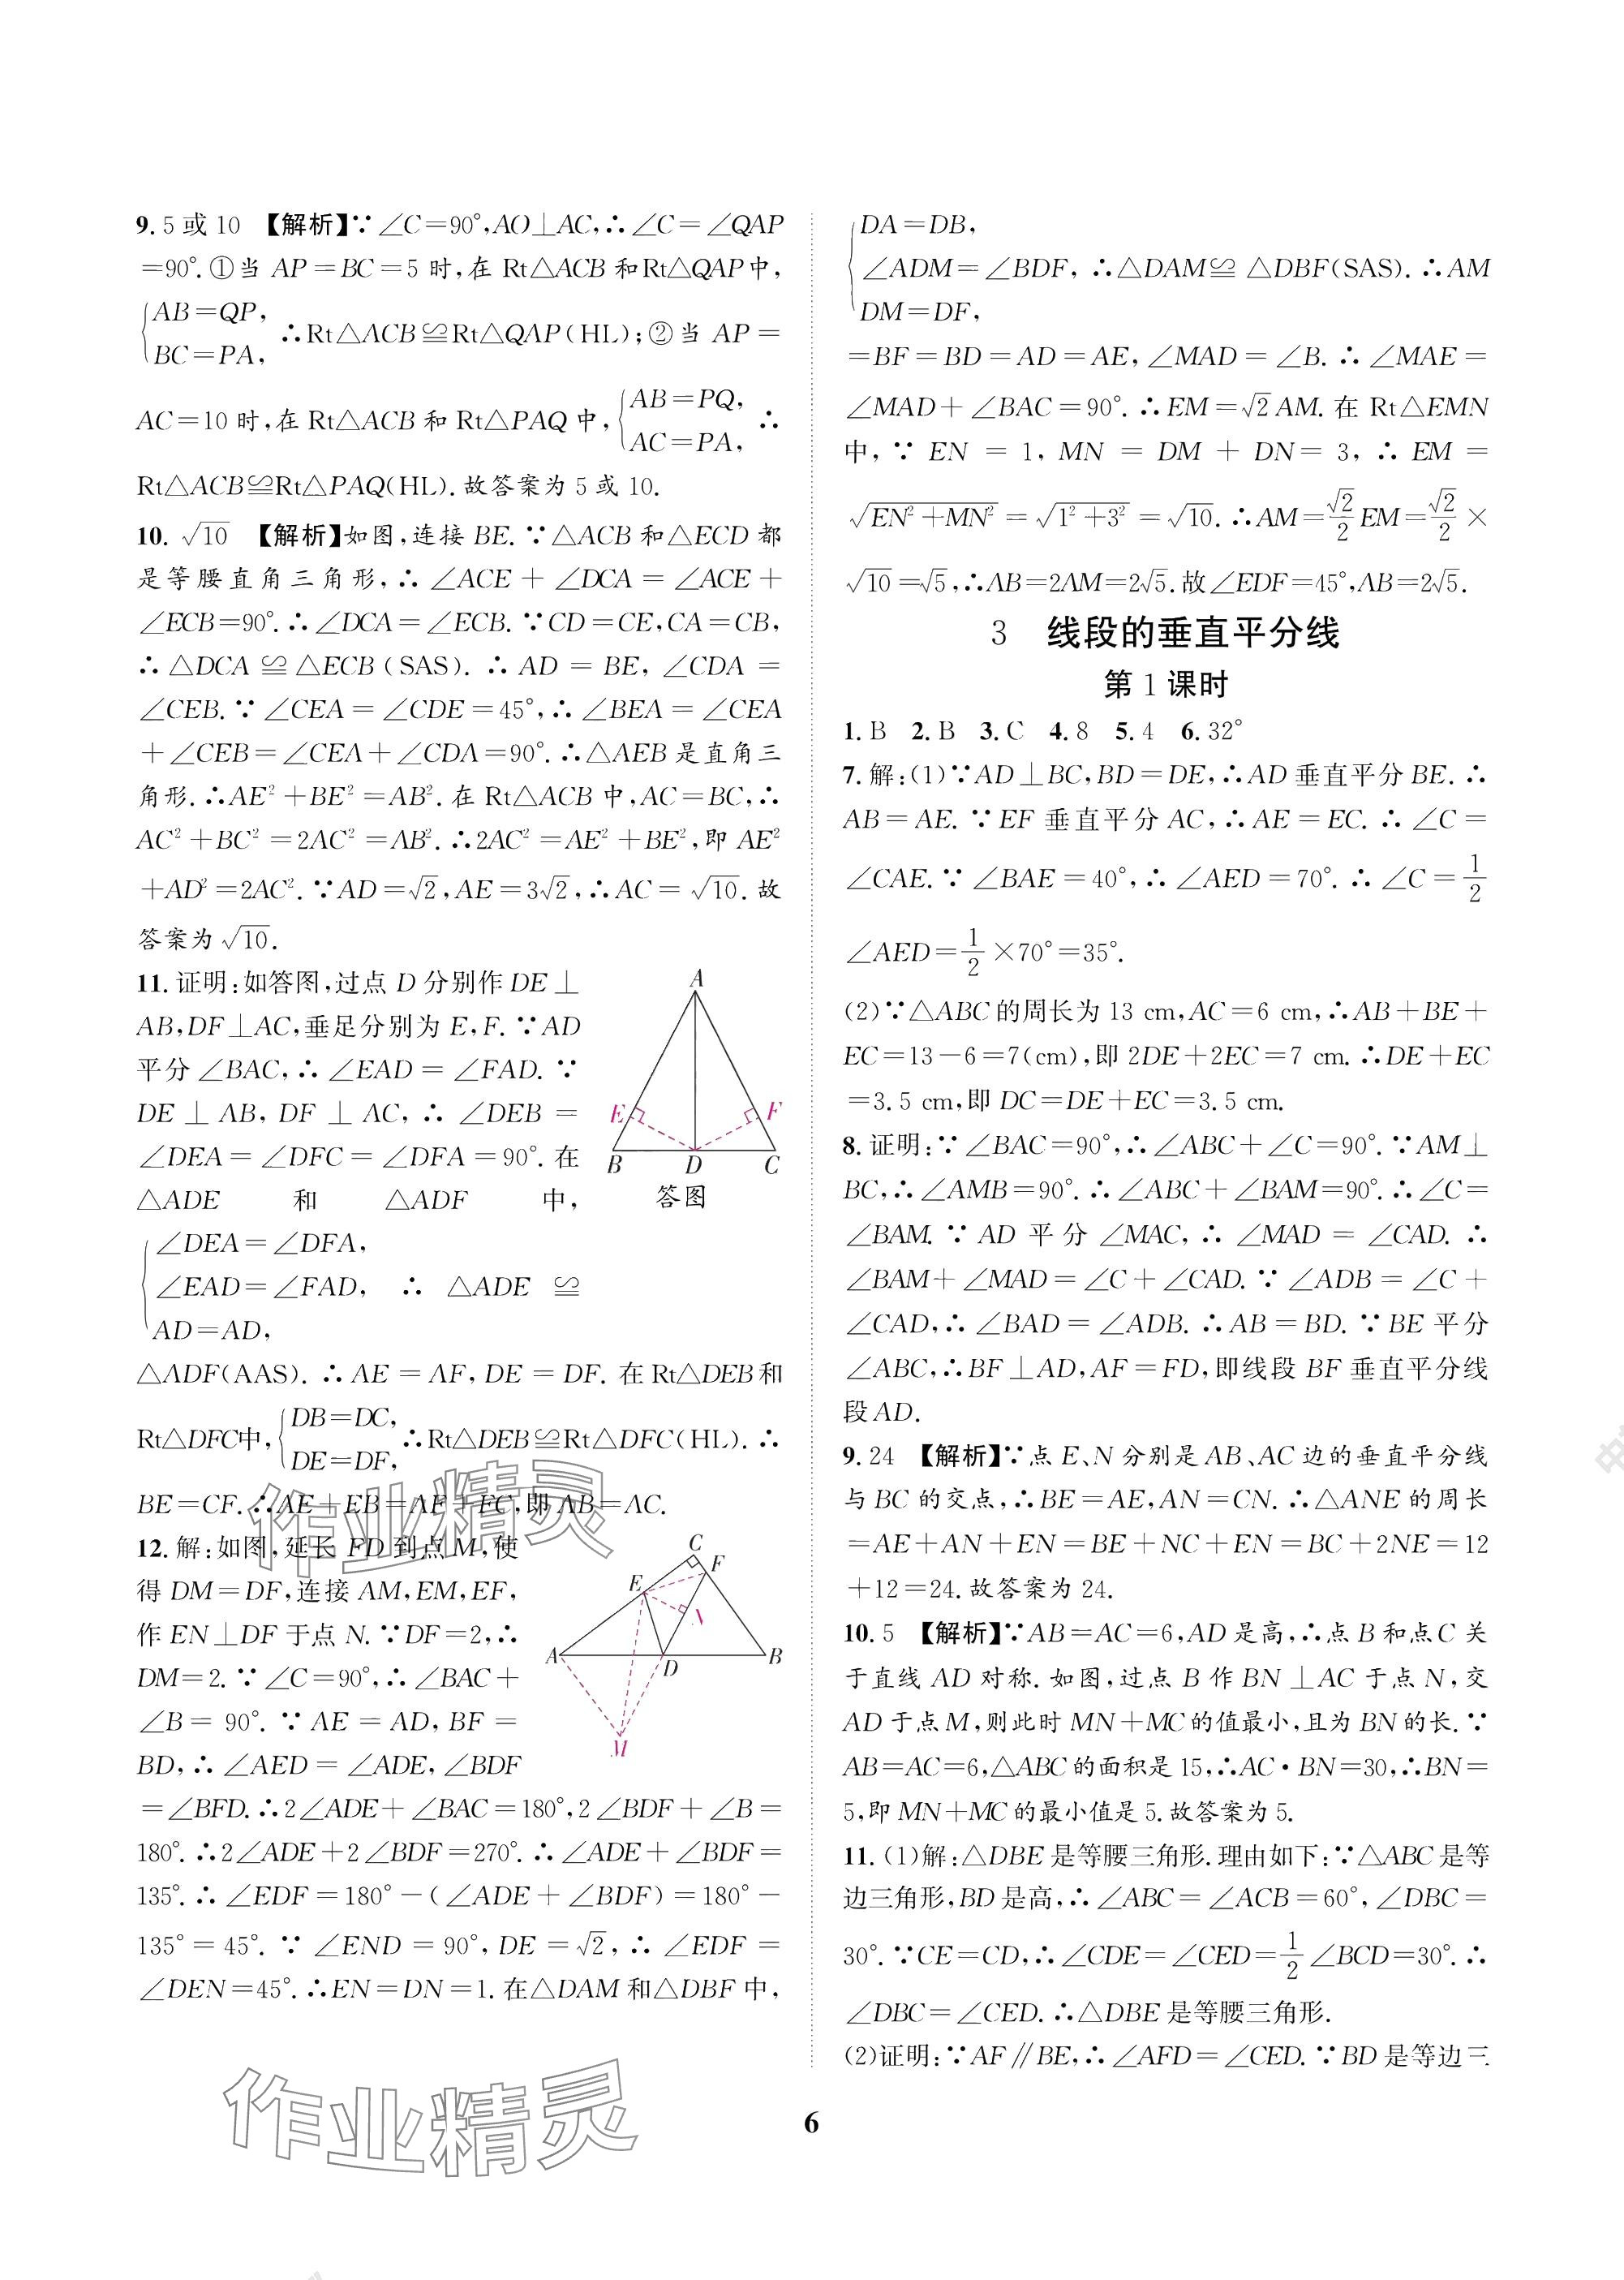 9. 5 或 10 【解析】∵∠C=90°,AO⊥AC,∴∠C=∠QAP
=90°.①当 AP=BC=5 时,在 Rt△ACB 和Rt△QAP中,
{AB=QP,
BC=PA, ∴Rt△ACB≌Rt△QAP(HL);②当 AP=
AC=10 时,在 Rt△ACB 和 Rt△PAQ 中,{AB=PQ,
AC=PA, ∴
Rt△ACB≌Rt△PAQ(HL).故答案为 5 或 10.
10. √10 【解析】如图,连接 BE.∵△ACB 和△ECD 都
是等腰直角三角形,∴∠ACE+∠DCA=∠ACE+
∠ECB=90°.∴∠DCA=∠ECB.∵CD=CE,CA=CB,
∴△DCA≌△ECB(SAS).∴AD=BE,∠CDA=
∠CEB.∵∠CEA=∠CDE=45°,∴∠BEA=∠CEA
+∠CEB=∠CEA+∠CDA=90°.∴△AEB 是直角三
角形.∴AE²+BE²=AB².在 Rt△ACB 中,AC=BC,∴
AC²+BC²=2AC²=AB².∴2AC²=AE²+BE²,即 AE²
+AD²=2AC².∵AD=√2,AE=3√2,∴AC=√10.故
答案为√10.
11. 证明:如答图,过点 D 分别作 DE⊥
AB,DF⊥AC,垂足分别为 E,F.∵AD
平分∠BAC,∴∠EAD=∠FAD.∵
DE⊥AB,DF⊥AC,∴∠DEB=
∠DEA=∠DFC=∠DFA=90°.在
△ADE 和 △ADF 中,
{∠DEA=∠DFA,
∠EAD=∠FAD, ∴ △ADE ≌
AD=AD,
A
E
F
B
D
C
答图
△ADF(AAS).∴AE=AF,DE=DF.在 Rt△DEB和
Rt△DFC中,{DB=DC,
DE=DF, ∴Rt△DEB≌Rt△DFC(HL).∴
BE=CF.∴AE+EB=AF+FC,即 AB=AC.
12. 解:如图,延长 FD 到点 M,使
得 DM=DF,连接 AM,EM,EF,
作 EN⊥DF 于点 N.∵DF=2,∴
DM=2.∵∠C=90°,∴∠BAC+
∠B=90°.∵AE=AD,BF=
BD,∴∠AED=∠ADE,∠BDF
C
F
E
N
A
D
B
M
=∠BFD.∴2∠ADE+∠BAC=180°,2∠BDF+∠B=
180°.∴2∠ADE+2∠BDF=270°.∴∠ADE+∠BDF=
135°.∴∠EDF=180°-(∠ADE+∠BDF)=180°-
135°=45°.∵∠END=90°,DE=√2,∴∠EDF=
∠DEN=45°.∴EN=DN=1.在△DAM 和△DBF 中,
{DA=DB,
∠ADM=∠BDF, ∴△DAM≌△DBF(SAS).∴AM
DM=DF,
=BF=BD=AD=AE,∠MAD=∠B.∴∠MAE=
∠MAD+∠BAC=90°.∴EM=√2AM.在 Rt△EMN
中,∵EN=1,MN=DM+DN=3,∴EM=
√(EN²+MN²)=√(1²+3²)=√10.∴AM=√2/2 EM=√2/2×
√10=√5,∴AB=2AM=2√5.故∠EDF=45°,AB=2√5.
3 线段的垂直平分线
第 1 课时
1. B 2. B 3. C 4. 8 5. 4 6. 32°
7. 解:(1)∵AD⊥BC,BD=DE,∴AD 垂直平分 BE.∴
AB=AE.∵EF 垂直平分 AC,∴AE=EC.∴∠C=
∠CAE.∵∠BAE=40°,∴∠AED=70°.∴∠C=1/2
∠AED=1/2×70°=35°.
(2)∵△ABC 的周长为 13 cm,AC=6 cm,∴AB+BE+
EC=13-6=7(cm),即 2DE+2EC=7 cm.∴DE+EC
=3.5 cm,即 DC=DE+EC=3.5 cm.
8. 证明:∵∠BAC=90°,∴∠ABC+∠C=90°.∵AM⊥
BC,∴∠AMB=90°.∴∠ABC+∠BAM=90°.∴∠C=
∠BAM.∵AD 平分∠MAC,∴∠MAD=∠CAD.∴
∠BAM+∠MAD=∠C+∠CAD.∵∠ADB=∠C+
∠CAD,∴∠BAD=∠ADB.∴AB=BD.∵BE 平分
∠ABC,∴BF⊥AD,AF=FD,即线段 BF 垂直平分线
段 AD.
9. 24 【解析】∵点 E、N 分别是 AB、AC 边的垂直平分线
与 BC 的交点,∴BE=AE,AN=CN.∴△ANE 的周长
=AE+AN+EN=BE+NC+EN=BC+2NE=12
+12=24.故答案为 24.
10. 5 【解析】∵AB=AC=6,AD 是高,∴点 B 和点 C 关
于直线 AD 对称.如图,过点 B 作 BN⊥AC 于点 N,交
AD 于点 M,则此时 MN+MC 的值最小,且为 BN 的长.∵
AB=AC=6,△ABC 的面积是 15,∴AC·BN=30,∴BN=
5,即 MN+MC 的最小值是 5.故答案为 5.
11. (1)解:△DBE 是等腰三角形.理由如下:∵△ABC 是等
边三角形,BD 是高,∴∠ABC=∠ACB=60°,∠DBC=
30°.∵CE=CD,∴∠CDE=∠CED=1/2∠BCD=30°.∴
∠DBC=∠CED.∴△DBE 是等腰三角形.
(2)证明:∵AF∥BE,∴∠AFD=∠CED.∵BD 是等边三
6
作业精灵
作业精灵